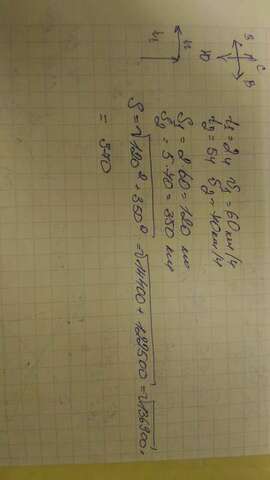 З С В
Ю
t₁ = 2 ч v₁ = 60 км/ч
t₂ = 5 ч v₂ = 70 км/ч
S₁ = 2·60 = 120 км
S₂ = 5·70 = 350 км
S = √120² + 350² = √14400 + 122500 = √136900 =
= 370